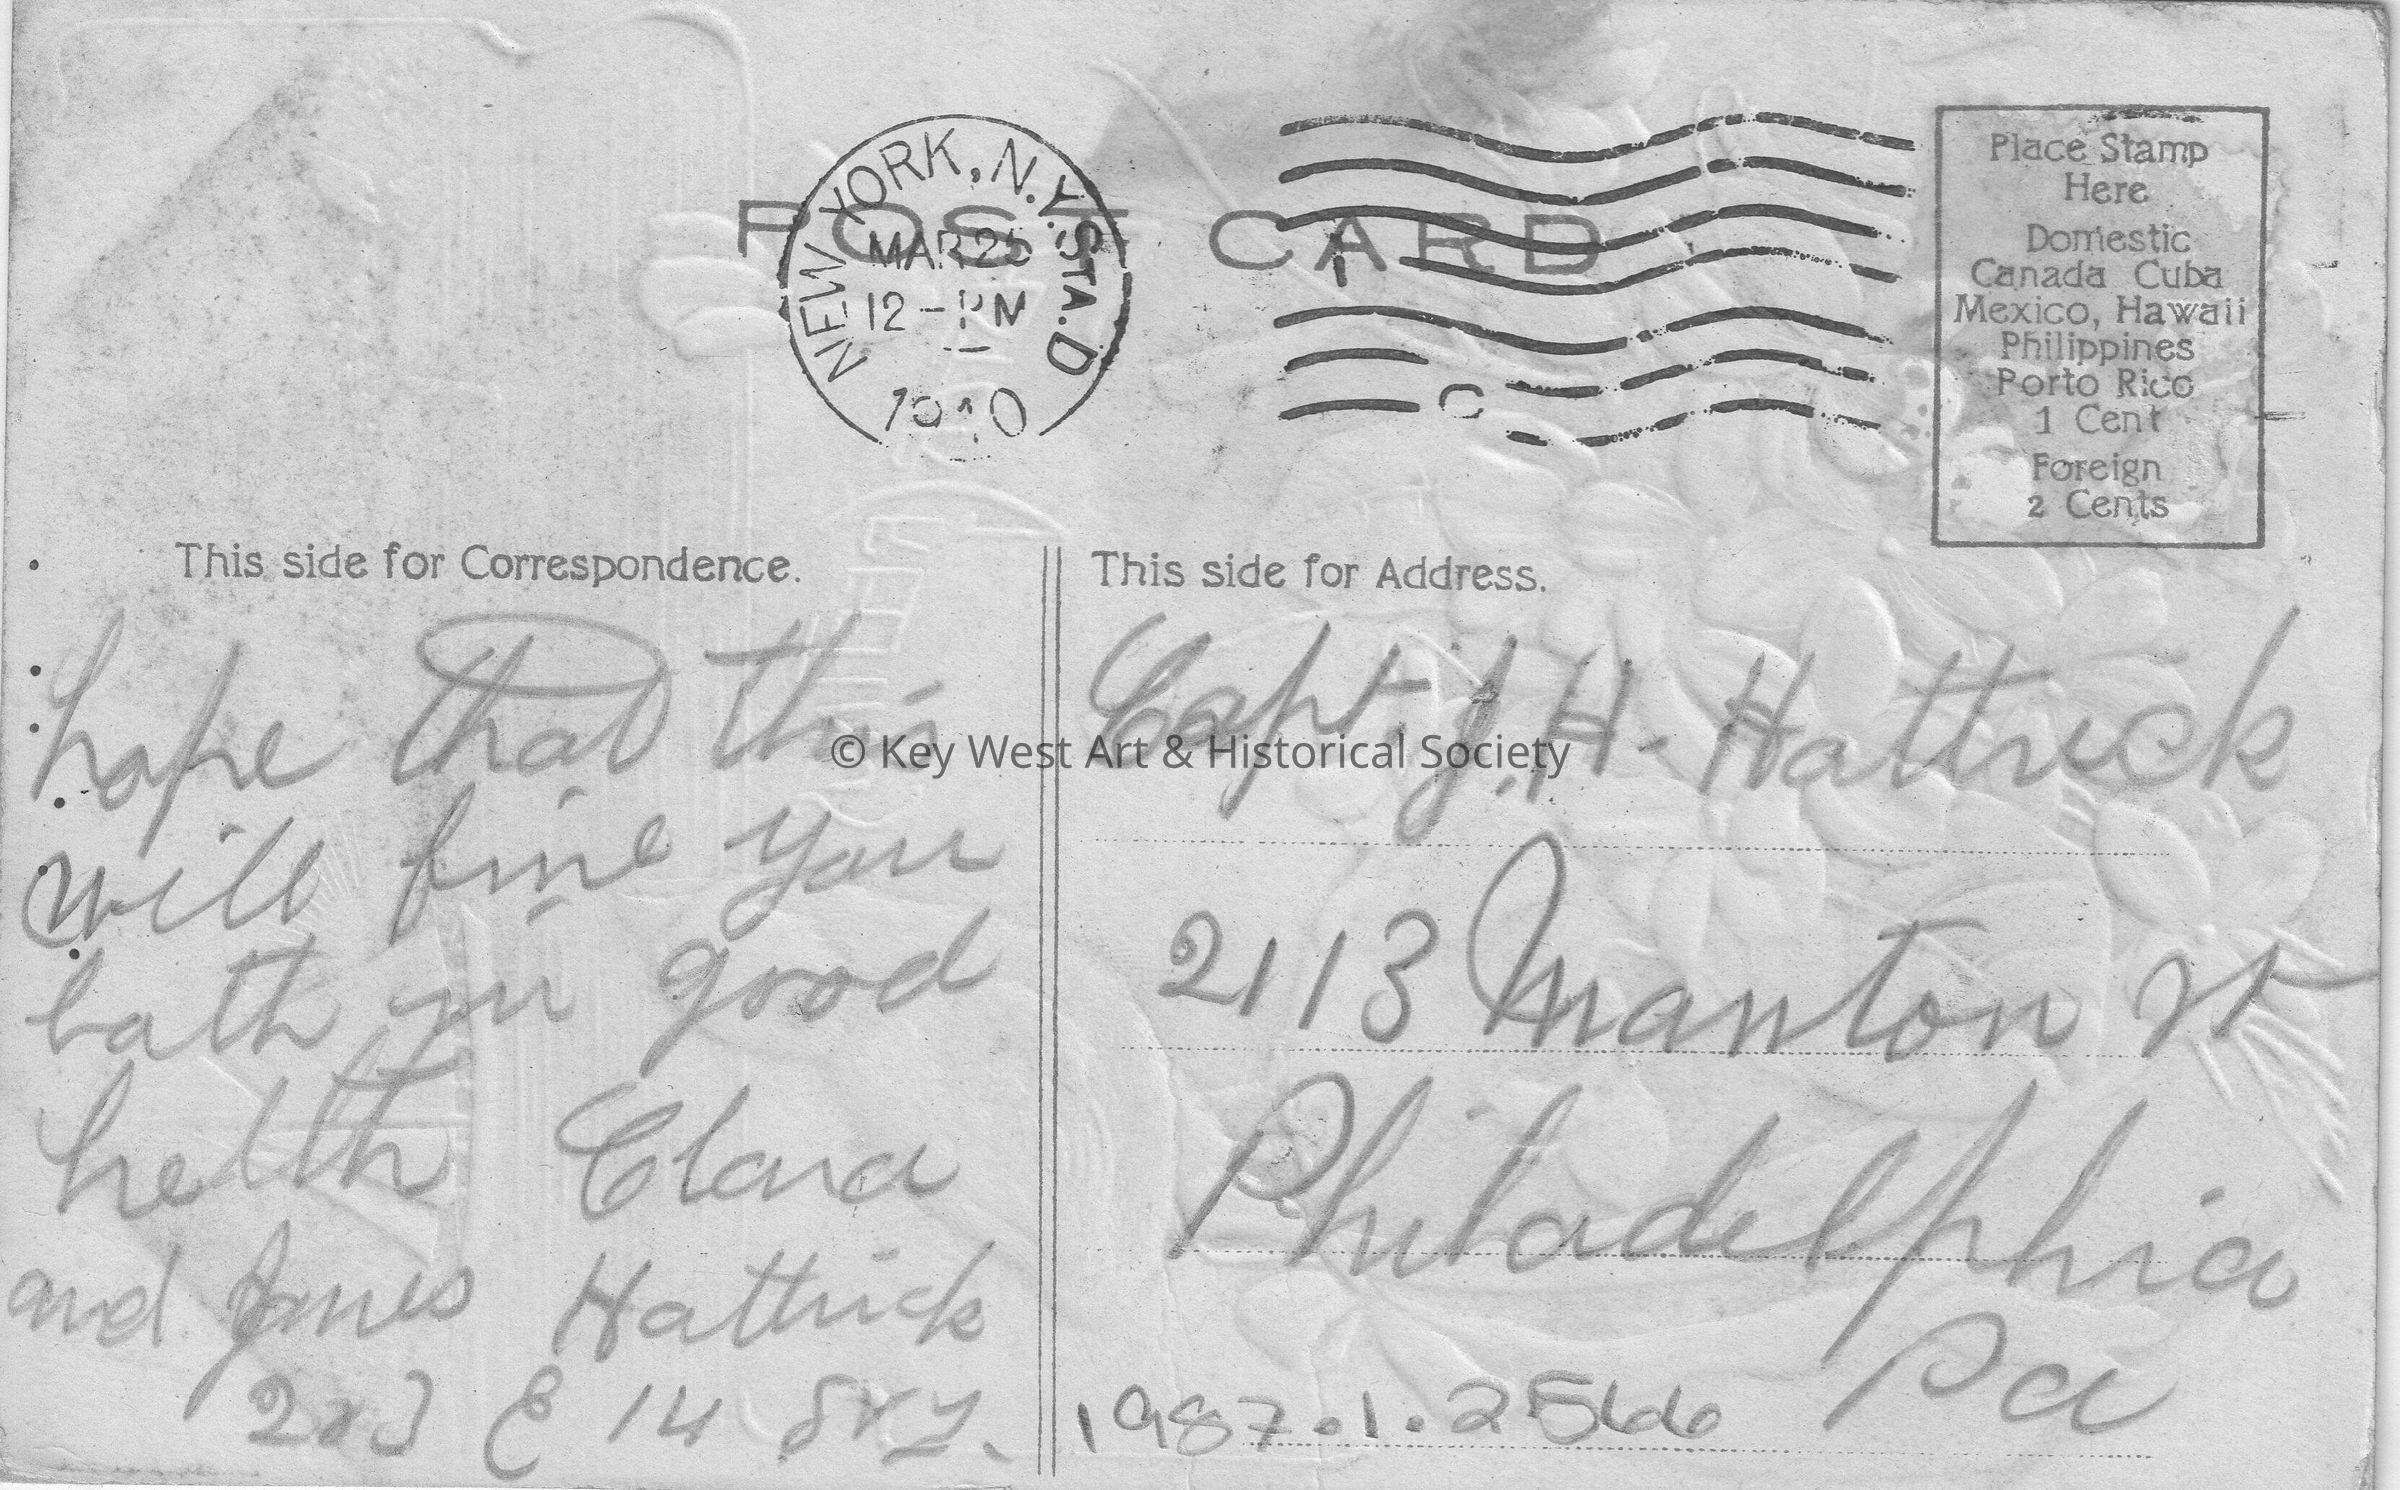 POST CARD
NEW YORK, N.Y. STA. D
MAR 25
12 - PM
1910
C
Place Stamp
Here
Domestic
Canada Cuba
Mexico, Hawaii
Philippines
Porto Rico
1 Cent
Foreign
2 Cents
This side for Correspondence.
hope that this
will fine you
bath in good
helth Clara
and James Hattrick
203 E 14 St N.Y.
This side for Address.
Capt. J. H. Hattrick
2113 Manton St
Philadelphia
Pa
1987.1.2566
© Key West Art & Historical Society